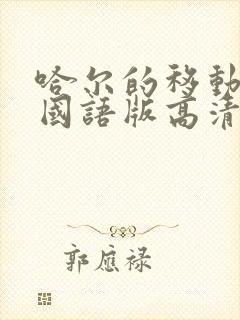 哈尔的移動
國語版高清
郭應禄